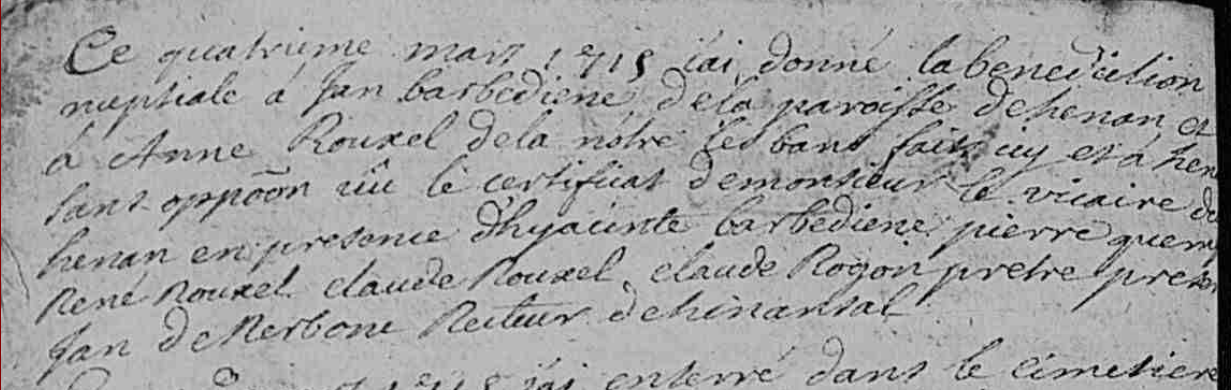 Ce quatrieme mars 1715 j'ai donné la benediction
nuptiale à Jan barbediene de la paroisse de henan, et
à Anne Rouxel de la nôtre les bans faits icy et à hen
sans oppoôn vû le certificat de monsieur le vicaire de
henan en presence d'hyacinte barbediene, pierre quem
René Rouxel claude Rouxel, claude Rogon pretre
Jan de Kerbone Recteur de hinansal
1715 j'ai enterré dans le cimetiere